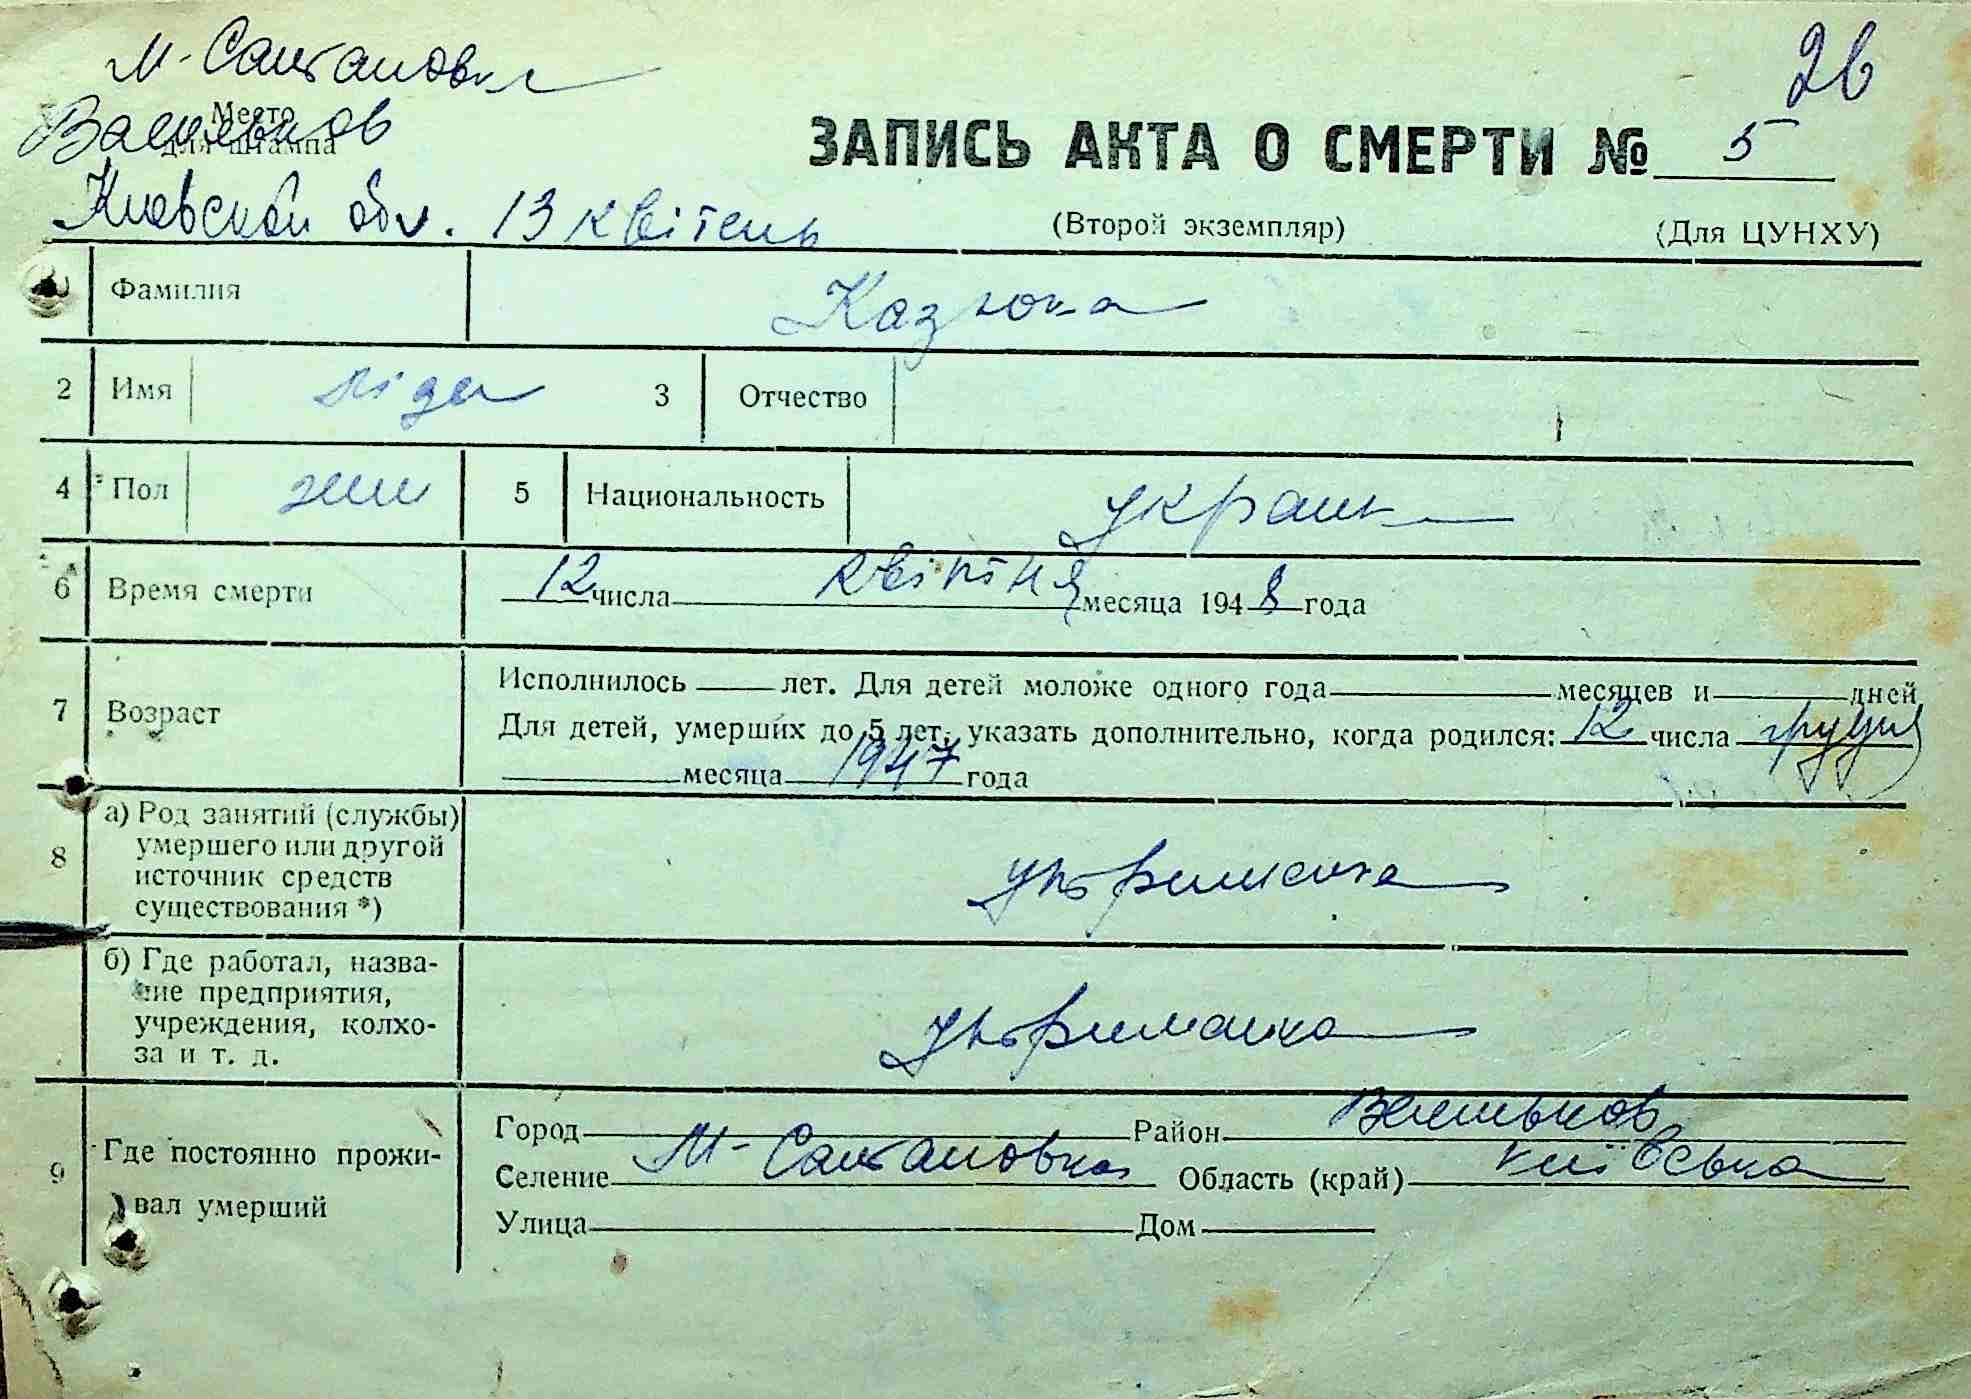 М-Салтановка
Место
Васильков
для штампа
Киевской обл. 13 квітень
26
ЗАПИСЬ АКТА О СМЕРТИ № 5
(Второй экземпляр)
(Для ЦУНХУ)
Фамилия Казюка
2 Имя Ліда 3 Отчество
4 Пол жін 5 Национальность українк
6 Время смерти 12 числа квітня месяца 1948 года
7 Возраст
Исполнилось лет. Для детей моложе одного года месяцев и дней
Для детей, умерших до 5 лет, указать дополнительно, когда родился: 12 числа грудня
месяца 1947 года
8
а) Род занятий (службы)
умершего или другой
источник средств
существования *)
утриманка
б) Где работал, назва-
ние предприятия,
учреждения, колхо-
за и т. д.
утриманка
9 Где постоянно прожи-
вал умерший
Город Район Васильков
Селение М-Салтановка Область (край) Київська
Улица Дом